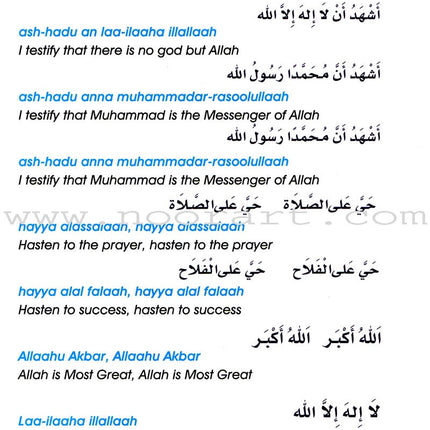 أَشْهَدُ أَنْ لَا إِلهَ إِلاَّ الله
ash-hadu an laa-ilaaha illallaah
I testify that there is no god but Allah
أَشْهَدُ أَنَّ مُحَمَّدًا رَسُولُ الله
ash-hadu anna muhammadar-rasoolullaah
I testify that Muhammad is the Messenger of Allah
أَشْهَدُ أَنَّ مُحَمَّدًا رَسُولُ الله
ash-hadu anna muhammadar-rasoolullaah
I testify that Muhammad is the Messenger of Allah
حَيَّ عَلى الصَّلَاة حَيَّ عَلى الصَّلَاة
www.noorart.com
hayya alassalaah, hayya alassalaah
Hasten to the prayer, hasten to the prayer
حَيَّ عَلى الْفَلَاح حَيَّ عَلى الْفَلَاح
hayya alal falaah, hayya alal falaah
Hasten to success, hasten to success
اَللهُ أَكْبَر اَللهُ أَكْبَر
Allaahu Akbar, Allaahu Akbar
Allah is Most Great, Allah is Most Great
لَا إِلهَ إِلاَّ الله
Laa-ilaaha illallaah